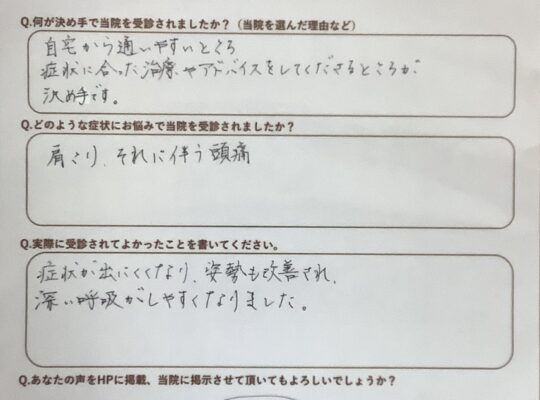 Q.何が決め手で当院を受診されましたか？（当院を選んだ理由など）
自宅から通いやすいところ
症状に合った治療やアドバイスをしてくださるところが
決め手です。
Q.どのような症状にお悩みで当院を受診されましたか？
肩こり、それに伴う頭痛
Q.実際に受診されてよかったことを書いてください。
症状が出にくくなり、姿勢も改善され、
深い呼吸がしやすくなりました。
Q.あなたの声をHPに掲載、当院に掲示させて頂いてもよろしいでしょうか？